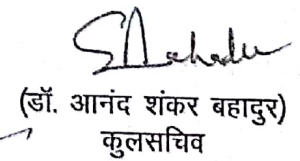 (डॉ. आनंद शंकर बहादुर)
कुलसचिव